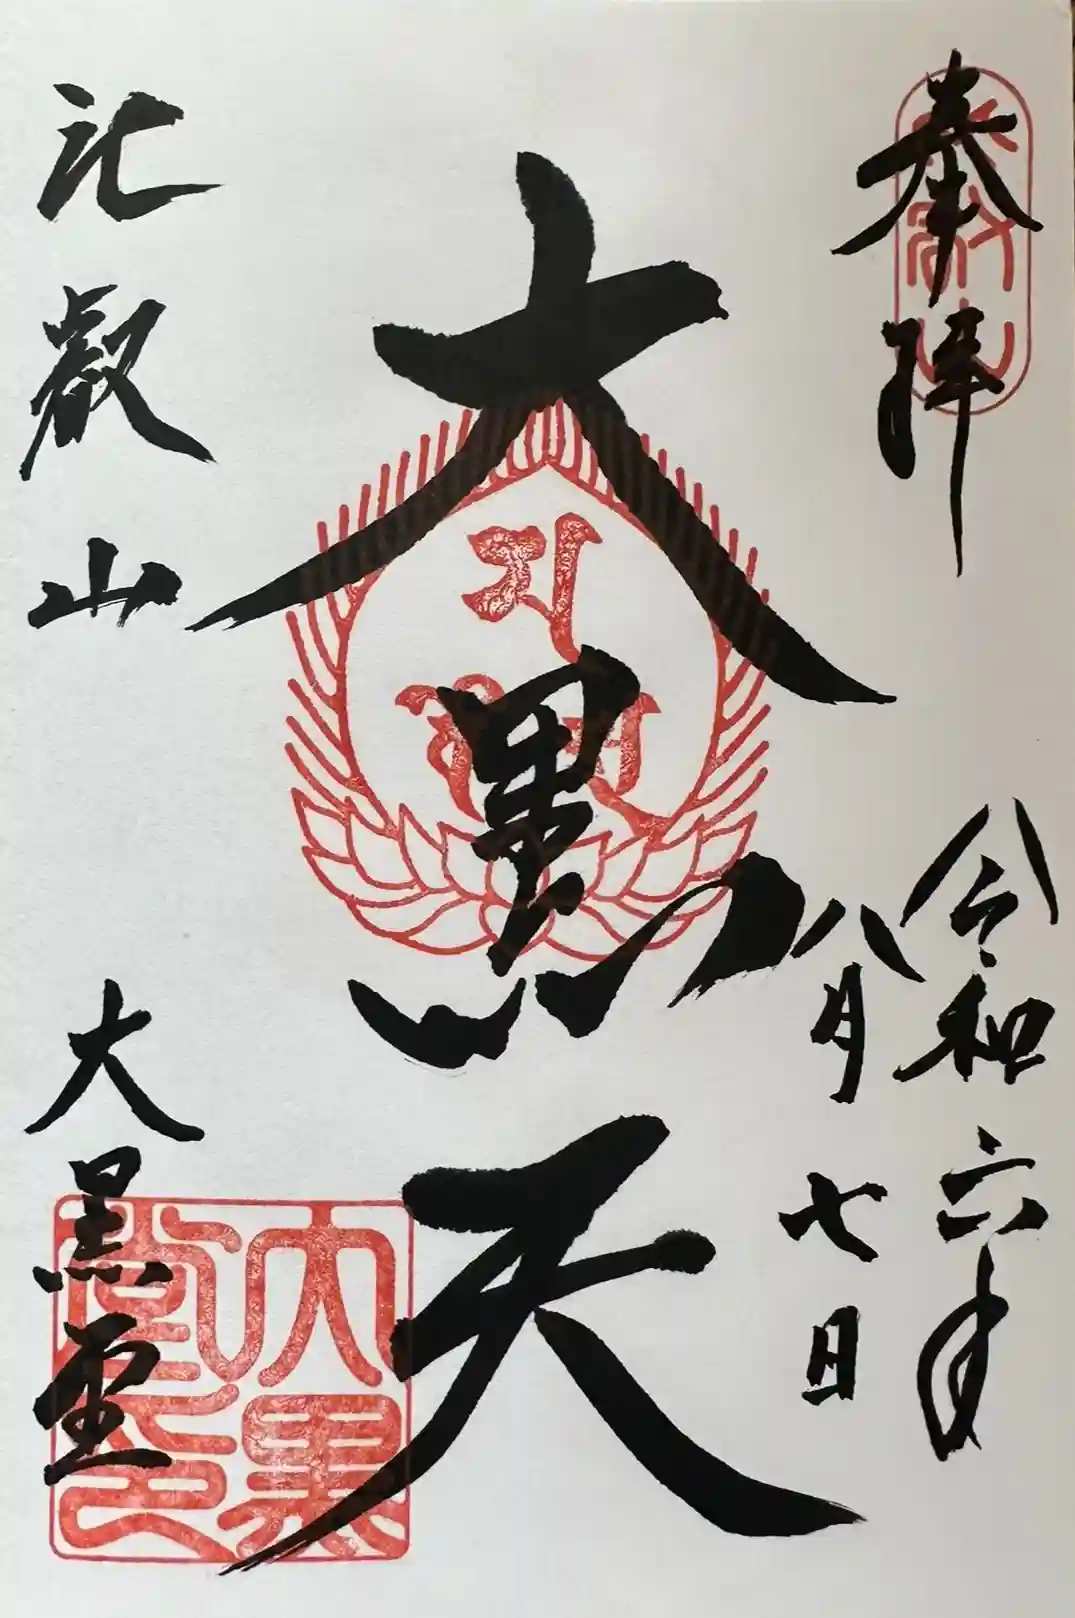 奉拝
令和六年
八月七日
大黒天
比叡山
大黒堂
大黒堂之印